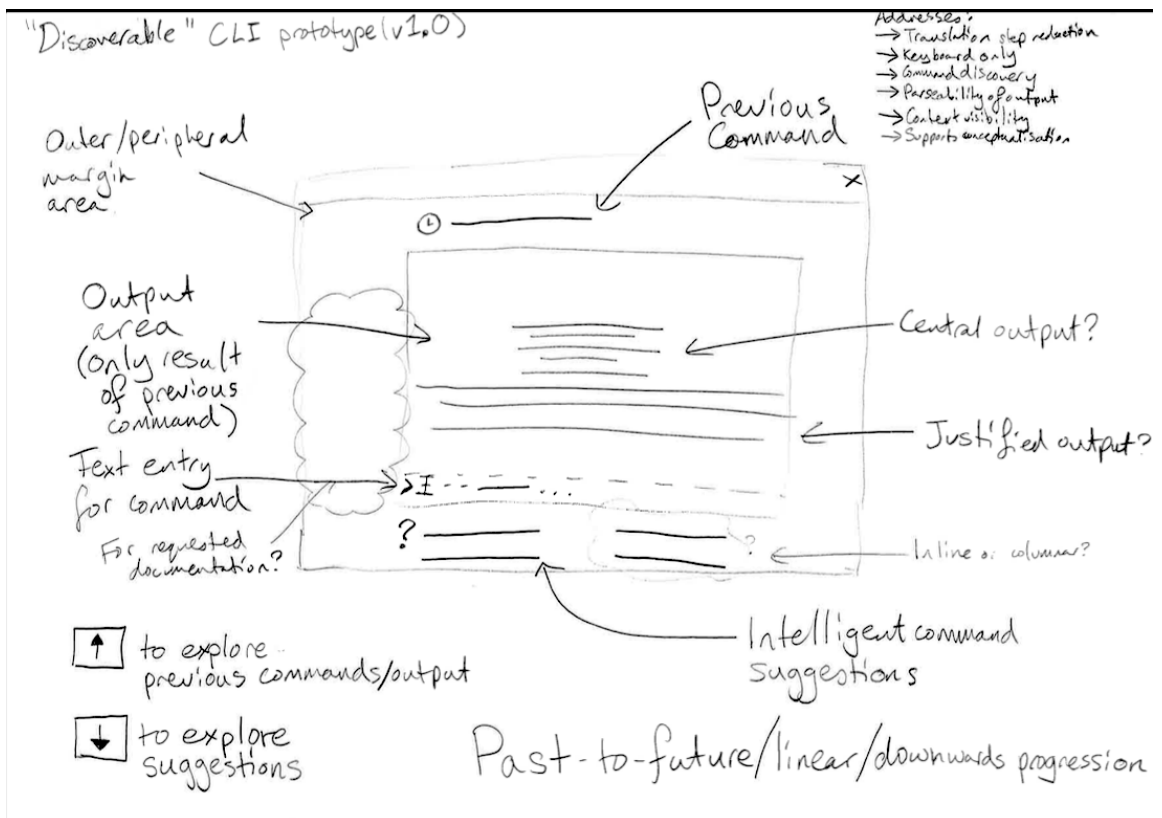 "Discoverable" CLI prototype (v1.0)
Addresses:
→ Translation step reduction
→ Keyboard only
→ Command discovery
→ Parseability of output
→ Context visibility
→ Supports conceptualisation
Previous
Command
Outer/peripheral
margin
area
X
Output
area
(only result
of previous
command)
Central output?
Justified output?
Text entry
for command
>I -- — ...
For requested
documentation?
?
?
Inline or columnar?
Intelligent command
suggestions
↑ to explore
previous commands/output
↓ to explore
suggestions
Past-to-future/linear/downwards progression